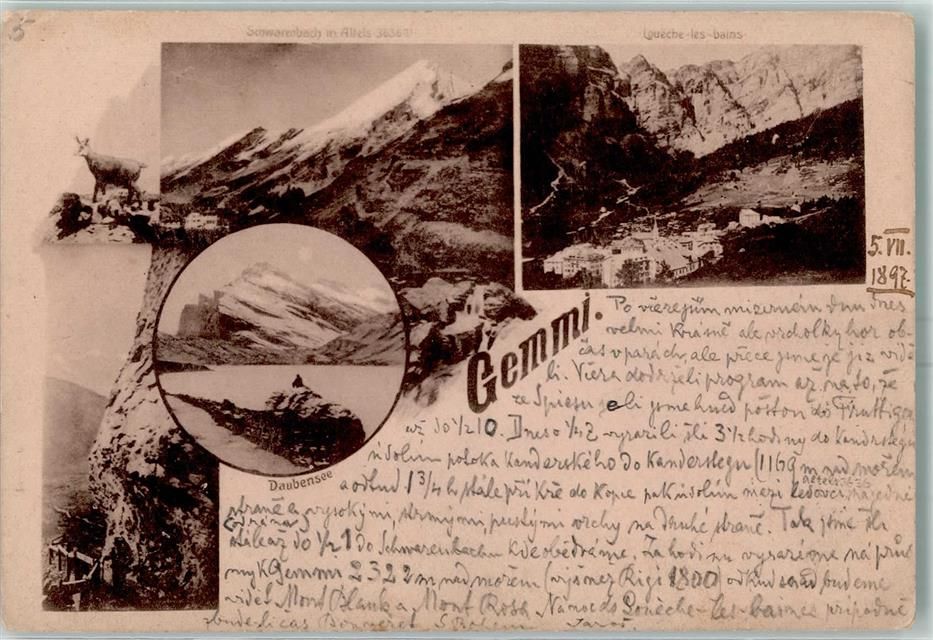 5
Schwarenbach m. Altels 3636 m
Louèche-les-bains
5. VII.
1897
Gemmi.
Daubensee
Po včerejším mizerném dnu dnes
velmi krásně ale vrcholky hor ob-
čas v parách, ale přece jsme je již vidě
li. Včera dodrželi program až na to, že
ze Spiezu jeli jsme hned poštou do Fruttigen
až do ½10. Dnes o ¼7 vyrazili šli 3½ hodiny do Kanderstegu
údolím potoka Kanderského do Kanderstegu (1169 m nad mořem
a odtud 1¾ h. stále příkře do kopce pak údolím mezi ledovci na jedné
Altels 3636
straně a vysokými, strmými, pustými vrchy na druhé straně. Tak jsme šli
stále až do ½1 do Schwarenbachu kde obědváme. Za hodinu vyrazíme na prům
myk Gemmi 2322 m nad mořem (výš než Rigi 1800) odkud snad budeme
vidět Mont Blank a Mont Rosa. Na noc do Louèche-les-bains případně
bude-li čas Bouveret. S Bohem Jaroš.